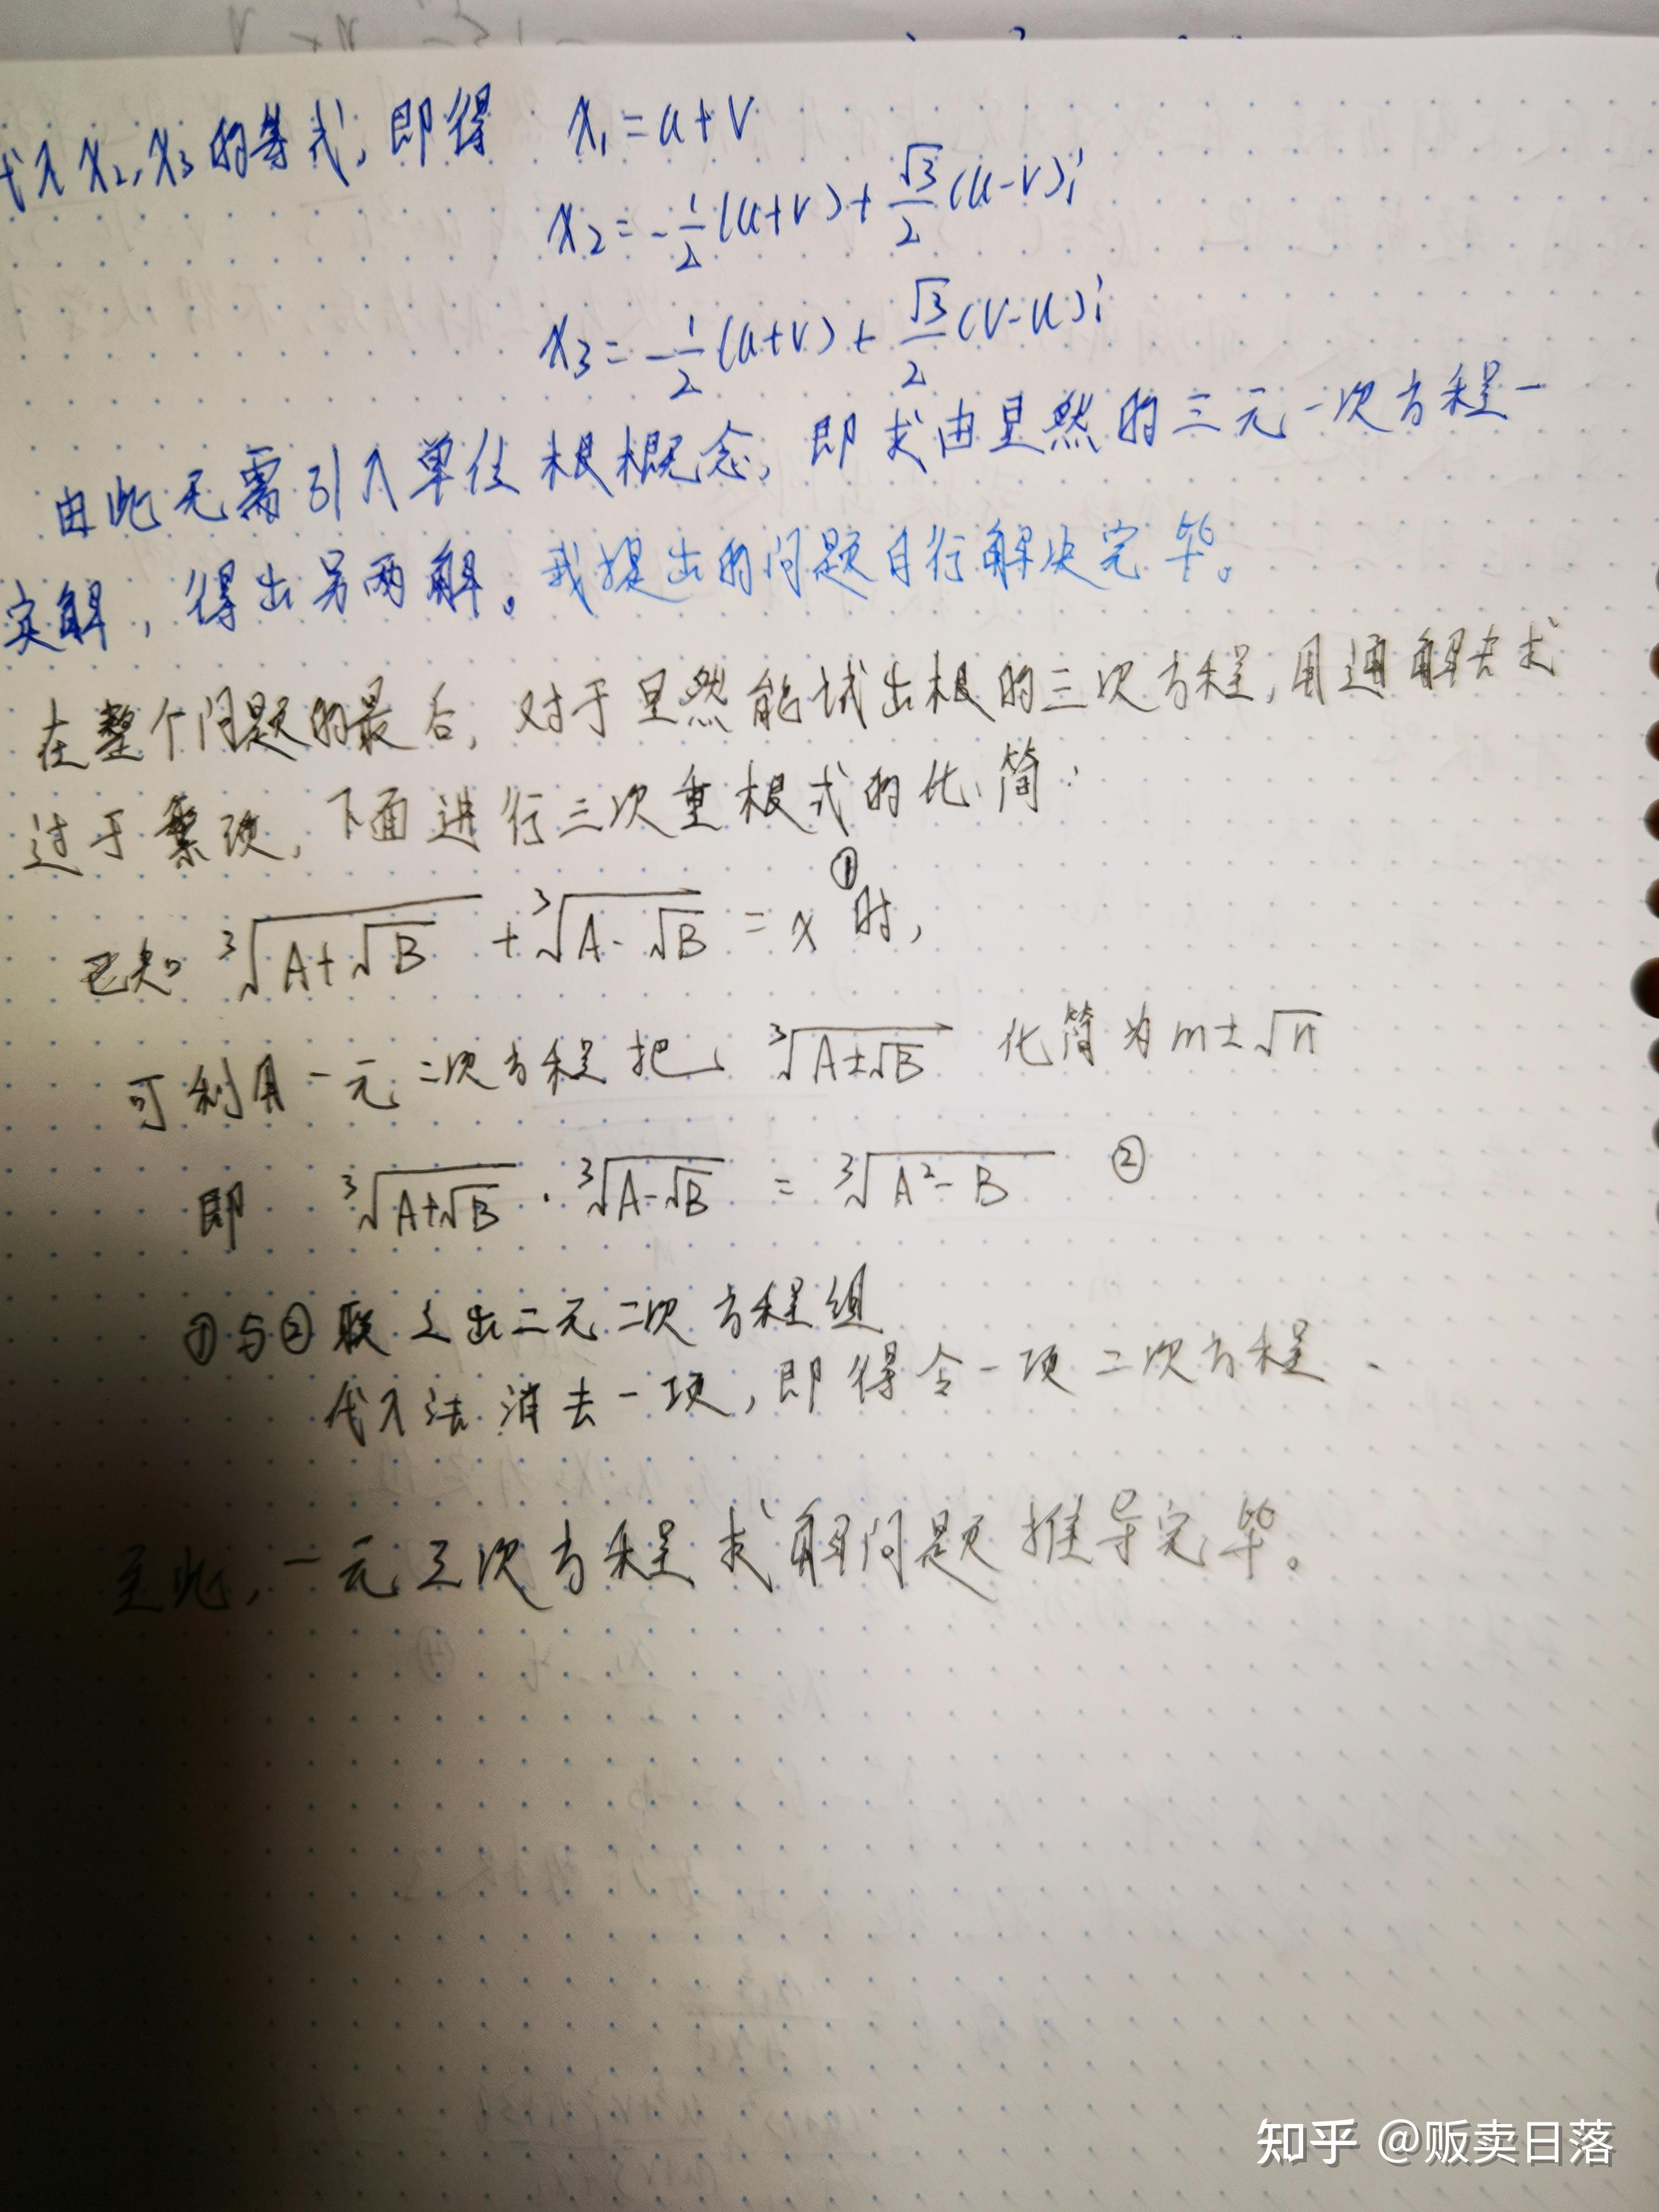 代入x₂,x₃的等式,即得 x₁=u+v
x₂=-1/2(u+v)+√3/2(u-v)i
x₃=-1/2(u+v)+√3/2(v-u)i
由此无需引入单位根概念,即求由显然的三元一次方程一
实解,得出另两解。我提出的问题自行解决完毕。
在整个问题的最后,对于显然能试出根的三次方程,用通解去求
过于繁琐,下面进行三次重根式的化简:
已知 ³√(A+√B) + ³√(A-√B) = x ① 时,
可利用一元二次方程把 ³√(A±√B) 化简为 m±√n
即 ³√(A+√B) · ³√(A-√B) = ³√(A²-B) ②
①与②联立出二元二次方程组
代入法消去一项,即得令一项二次方程.
至此,一元三次方程求解问题推导完毕。
知乎 @贩卖日落